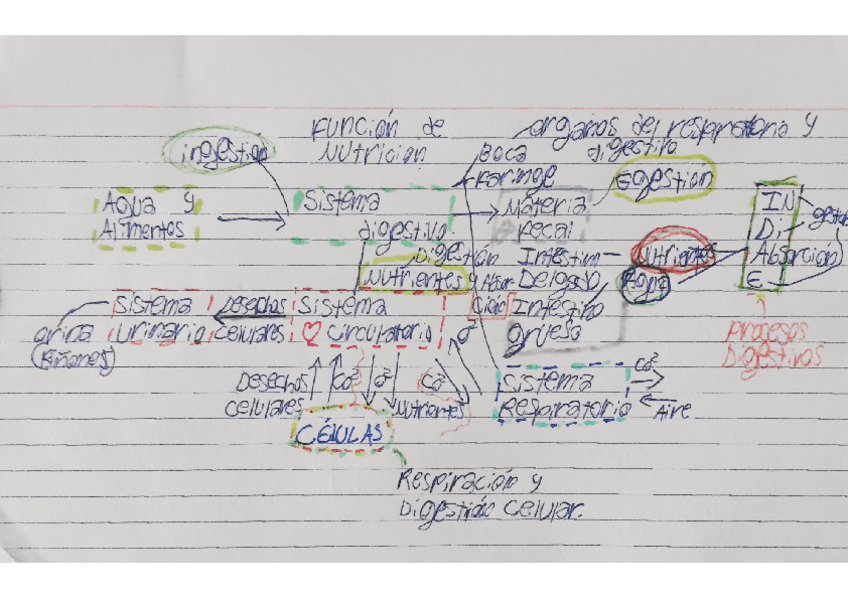 Función de
Nutrición
ingestión
organos del respiratoria y
digestivo
Boca
Faringe
Egestión
Agua y
Alimentos
Sistema
digestivo
Materia
Fecal
Digestión
Nutrientes y Absor
ción
Intestin
Delgado
Intestino
grueso
Nutrientes
Agua
IN
Di
Absorción
E
gestión
procesos
Digestivos
orina
(Riñones)
Sistema
Urinario
Desechos
celulares
Sistema
Circulatorio
O²
Desechos
celulares
Co²
O²
Nutrientes
Co²
Sistema
Respiratorio
Co²
Aire
CÉLULAS
Respiración y
Digestión celular.